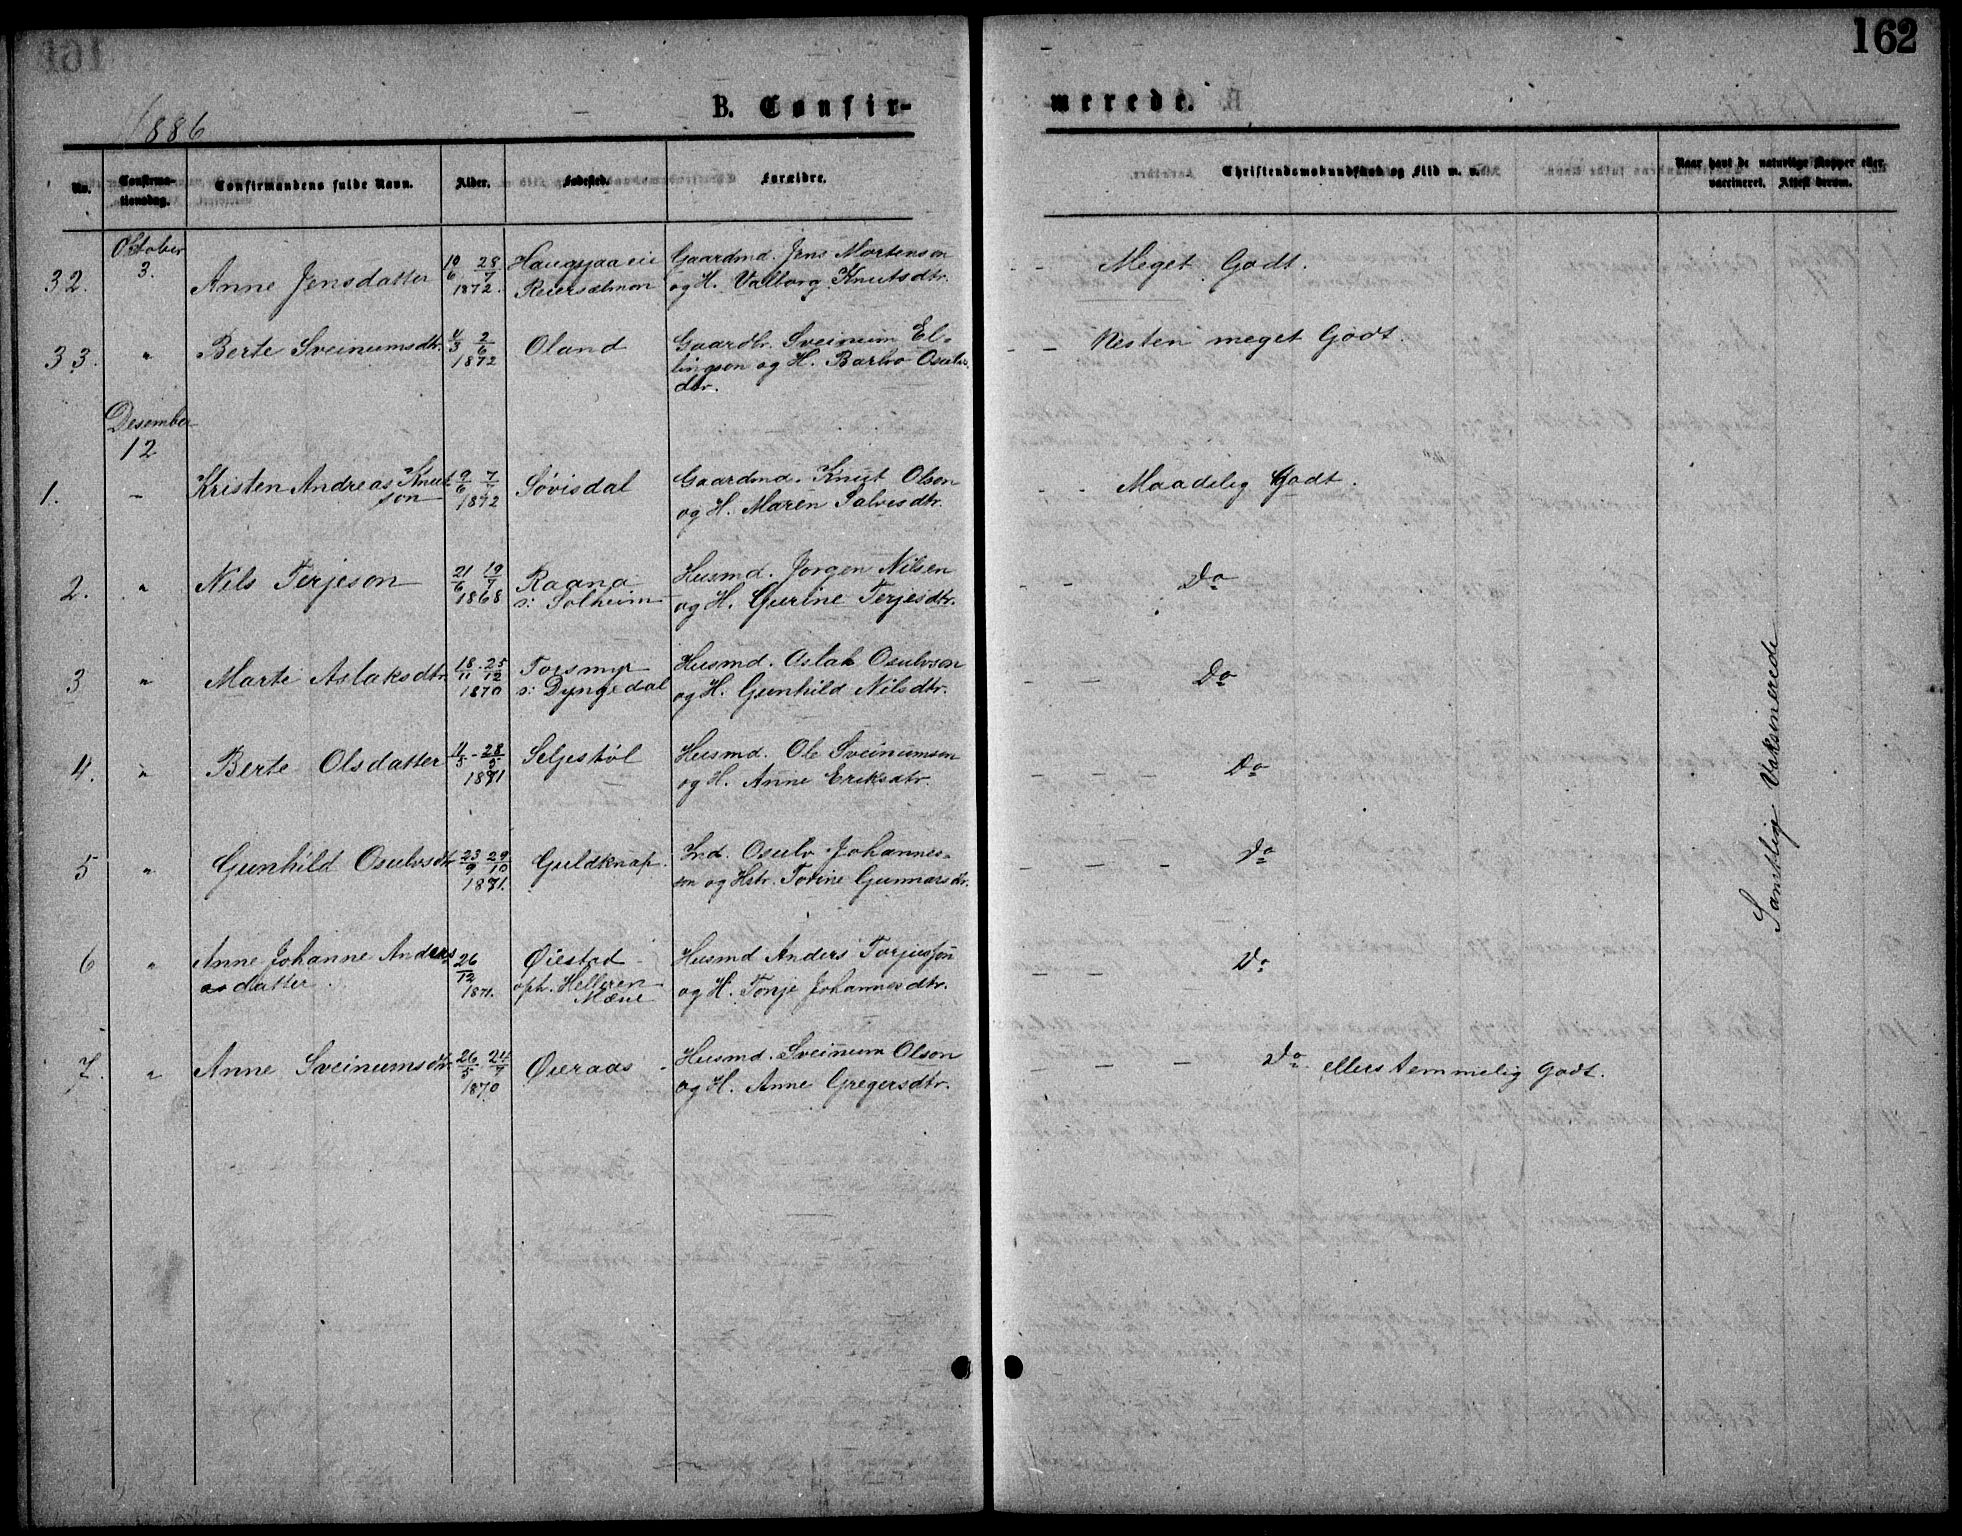 162
1886
B. Confir-
merede.
No.
Confirma-
tionsdag.
Confirmandens fulde Navn.
Alder.
Fødested.
Forældre.
Christendomskundskab og Flid m. v.
Naar havt de naturlige Kopper eller
vaccineret. Attest derom.
Oktober
32. 3. Anne Jensdatter 19/6 28/7 1872. Haugsjaa eie Gaardmd. Jens Mortenson
Reierselmon og H. Valborg Knutsdtr.
Meget Godt.
33. " Berte Sveinumsdtr. 4/3 2/6 1872 Oland Gaardbr. Sveinum El-
lingson og H. Barbro Osulvs
dtr.
Nesten meget Godt.
Desember
12
1. - Kristen Andreas Knut
son 19/6 7/7 1872 Søvisdal Gaardmd. Knut Olson
og H. Maren Salvesdtr.
Maadelig Godt.
2. " Nils Terjeson 21/6 19/7 1868 Raana Husmd. Jorgen Nilsen
s: Solheim og H. Gurine Terjesdtr.
Do
3 " Marte Aslaksdtr. 18/11 - 25/12 1870 Torsmyr Husmd. Oslak Osulvson
s: Dyngedal og H. Gunhild Nilsdtr.
Do
4. " Berte Olsdatter 11/5 - 28/5 1871 Seljestøl Husmd. Ole Sveinumson
og H. Anne Eriksdtr.
Do
5 " Gunhild Osulvsdtr 23/9 29/10 1871. Guldknap. Ind. Osulv Johannes-
son og Hstr. Torine Gunnarsdtr.
Do
6 " Anne Johanne Anders
datter. 26/12 1871. Øiestad Husmd Anders Torjusson
oph. Helleren og H. Tonje Johannesdtr.
Mæne
Do
7. " Anne Sveinumsdtr 26/5 24/7 1870 Øieraas Husmd. Sveinum Olson
og H. Anne Gregersdtr.
Do. ellers temmelig godt.
Samtlig Vaksinerede